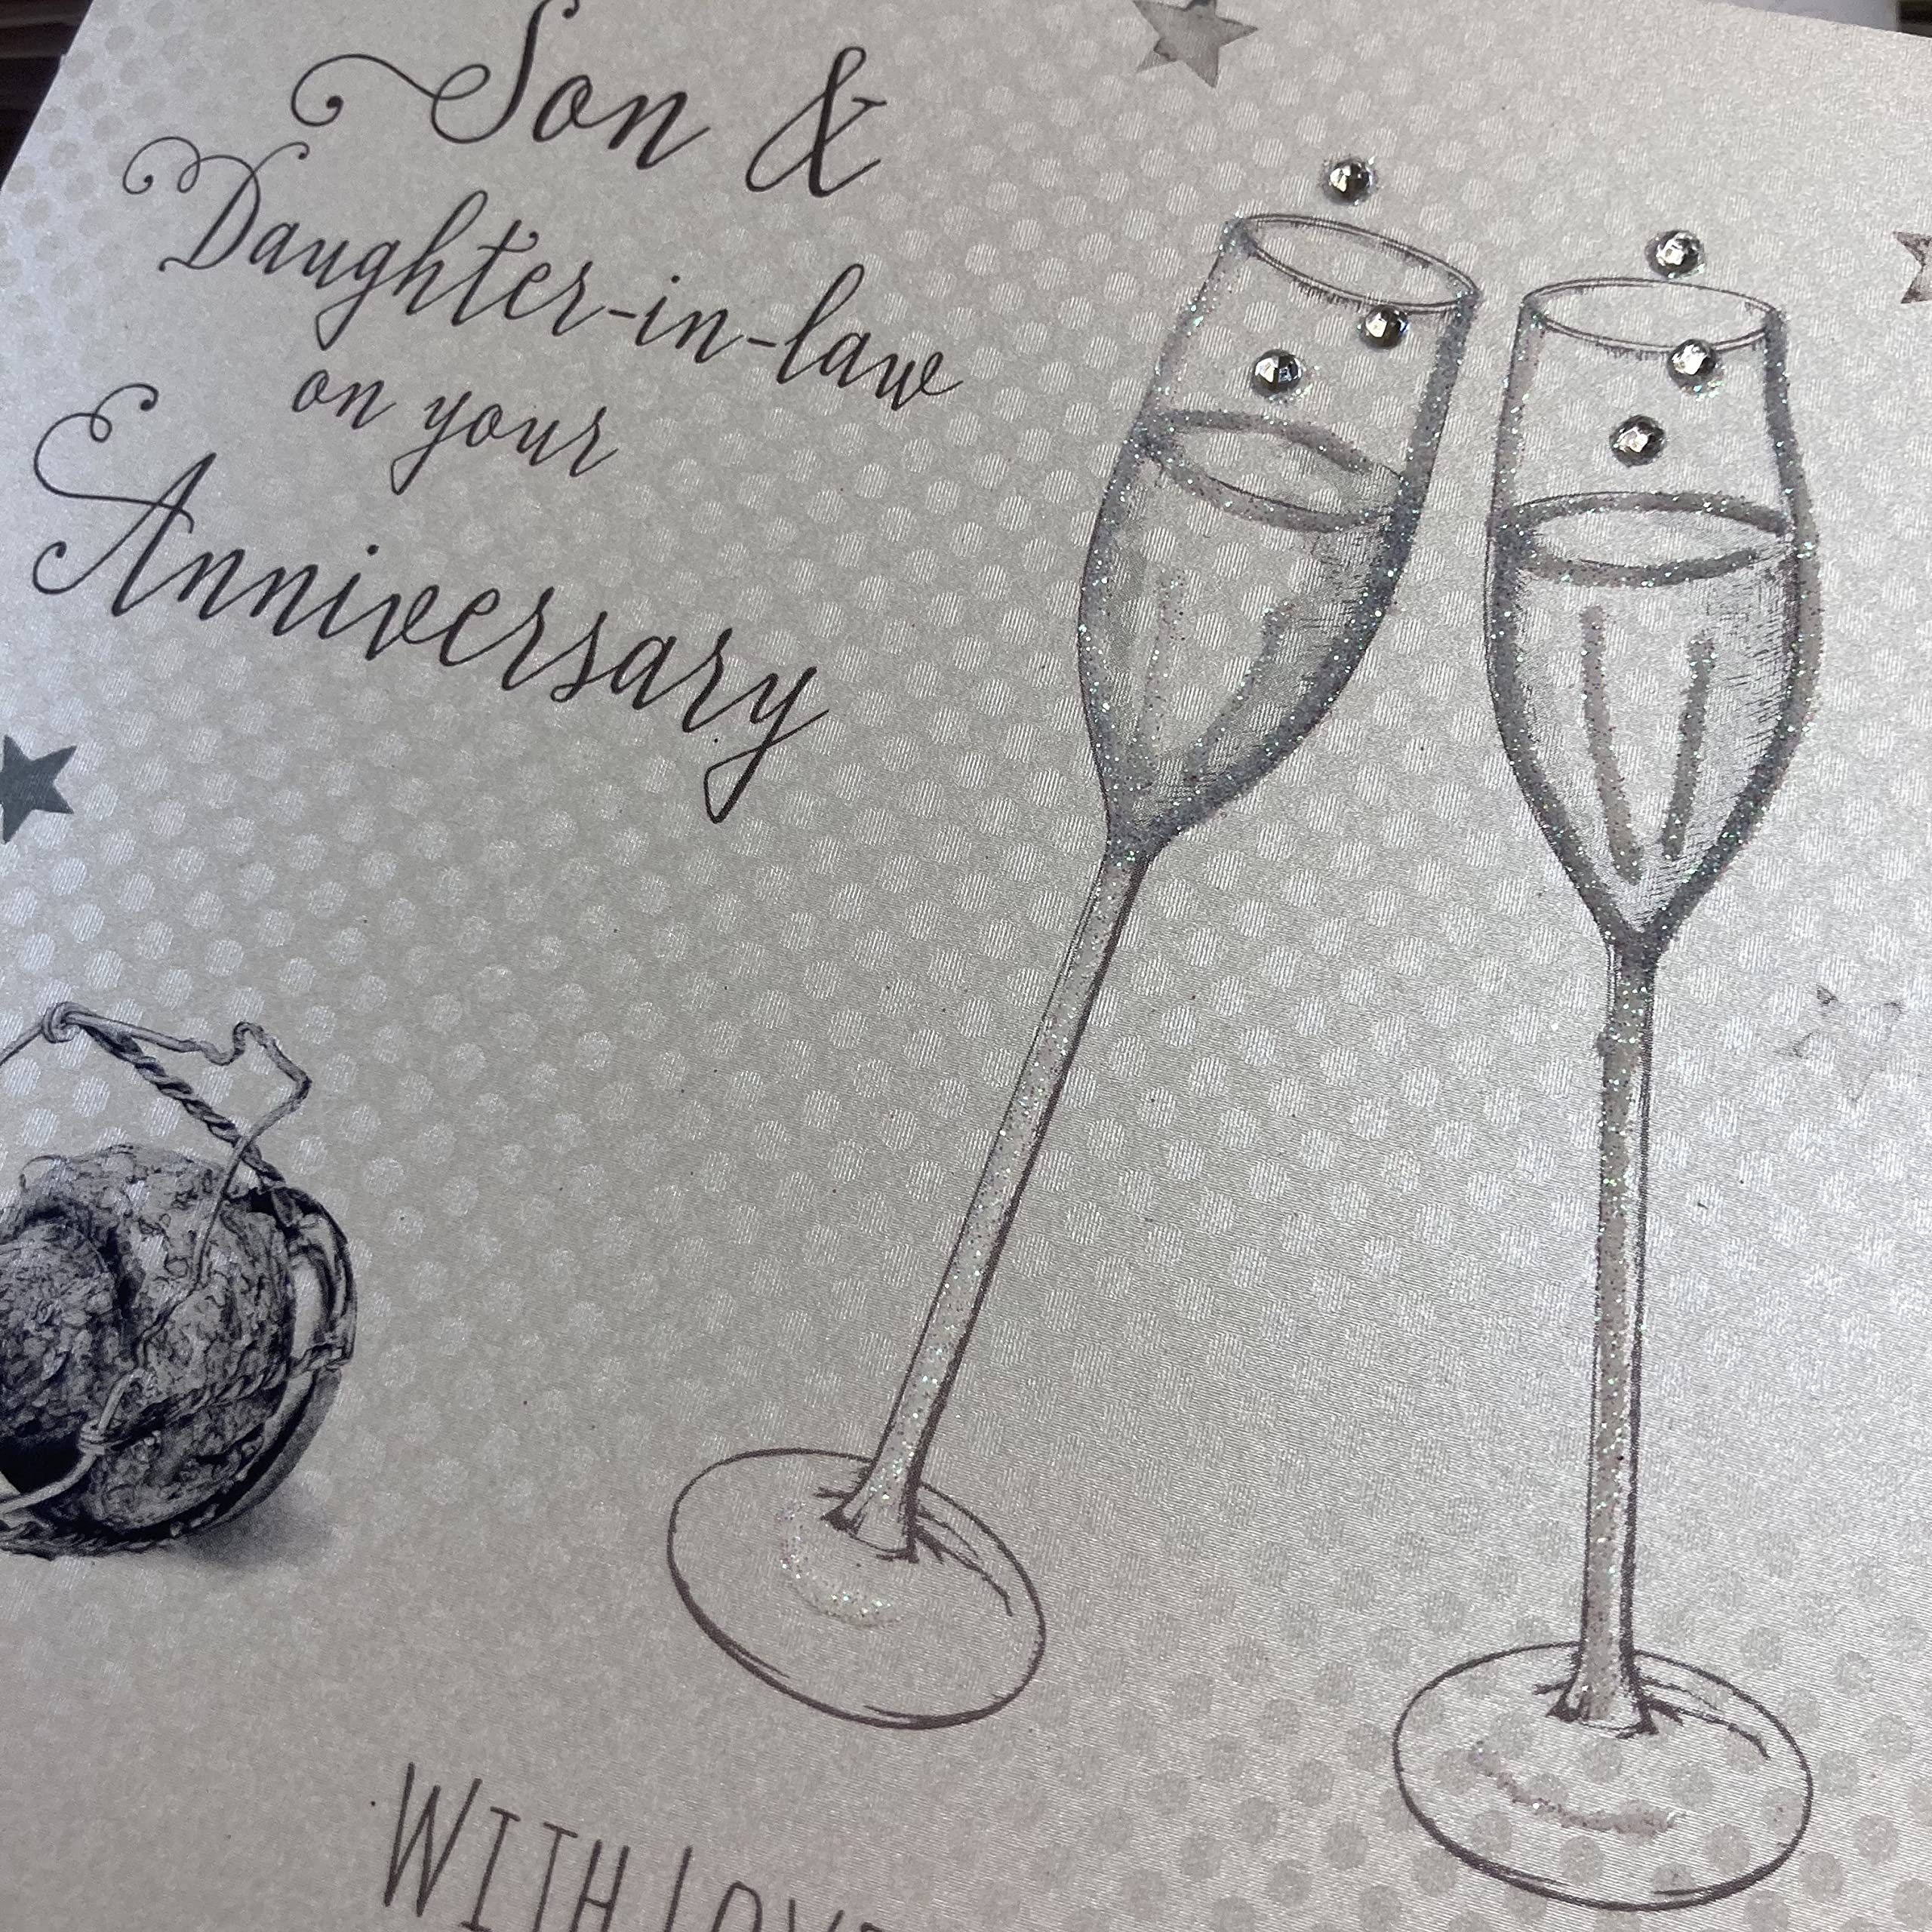 Son &
Daughter-in-law
on your
Anniversary
WITH LOVE